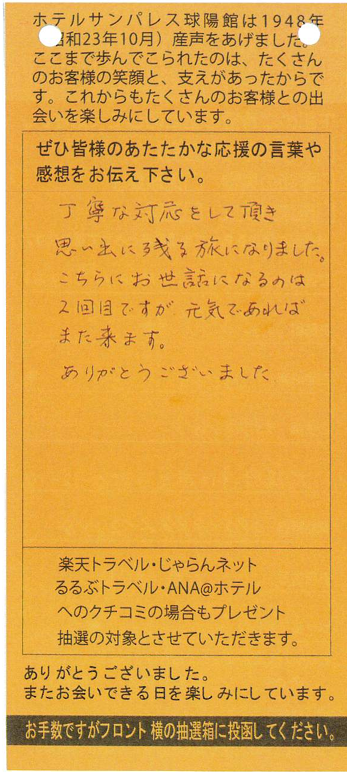 ホテルサンパレス球陽館は1948年
昭和23年10月）産声をあげました。
ここまで歩んでこられたのは、たくさん
のお客様の笑顔と、支えがあったからで
す。これからもたくさんのお客様との出
会いを楽しみにしています。
ぜひ皆様のあたたかな応援の言葉や
感想をお伝え下さい。
丁寧な対応をして頂き
思い出に残る旅になりました。
こちらにお世話になるのは
2回目ですが 元気であれば
また来ます。
ありがとうございました
楽天トラベル・じゃらんネット
るるぶトラベル・ANA@ホテル
へのクチコミの場合もプレゼント
抽選の対象とさせていただきます。
ありがとうございました。
またお会いできる日を楽しみにしています。
お手数ですがフロント横の抽選箱に投函してください。